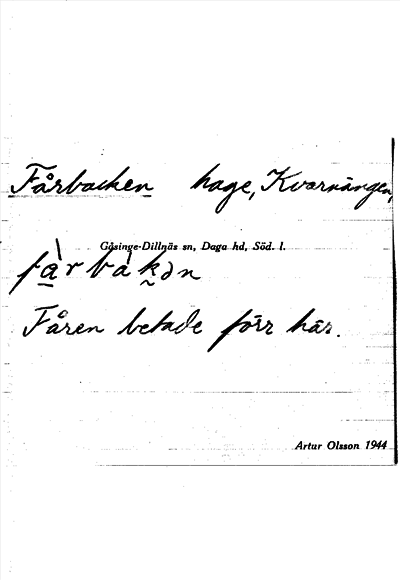 Fårbacken hage, Kvarnängen,
Gåsinge-Dillnäs sn, Daga hd, Söd. l.
fàrbàkən
Fåren betade förr här.
Artur Olsson 1944